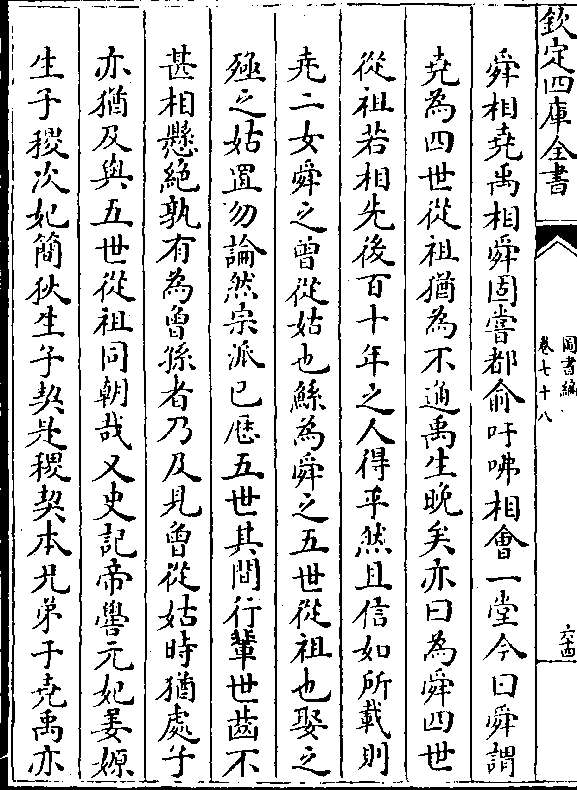 欽定四庫全書
圖書編
卷七十八
六十四
舜相堯禹相舜固嘗都俞吁咈相會一堂今曰舜謂
堯為四世從祖猶為不通禹生晚矣亦曰為舜四世
從祖若相先後百十年之人得乎然且信如所載則
堯二女舜之曾從姑也鯀為舜之五世從祖也娶之
殛之姑置勿論然宗派已歷五世其間行輩世齒不
甚相懸絕孰有為曾孫者乃及見曾從姑時猶處子
亦猶及與五世從祖同朝哉又史記帝嚳元妃姜嫄
生子稷次妃簡狄生子契是稷契本兄弟于堯禹亦